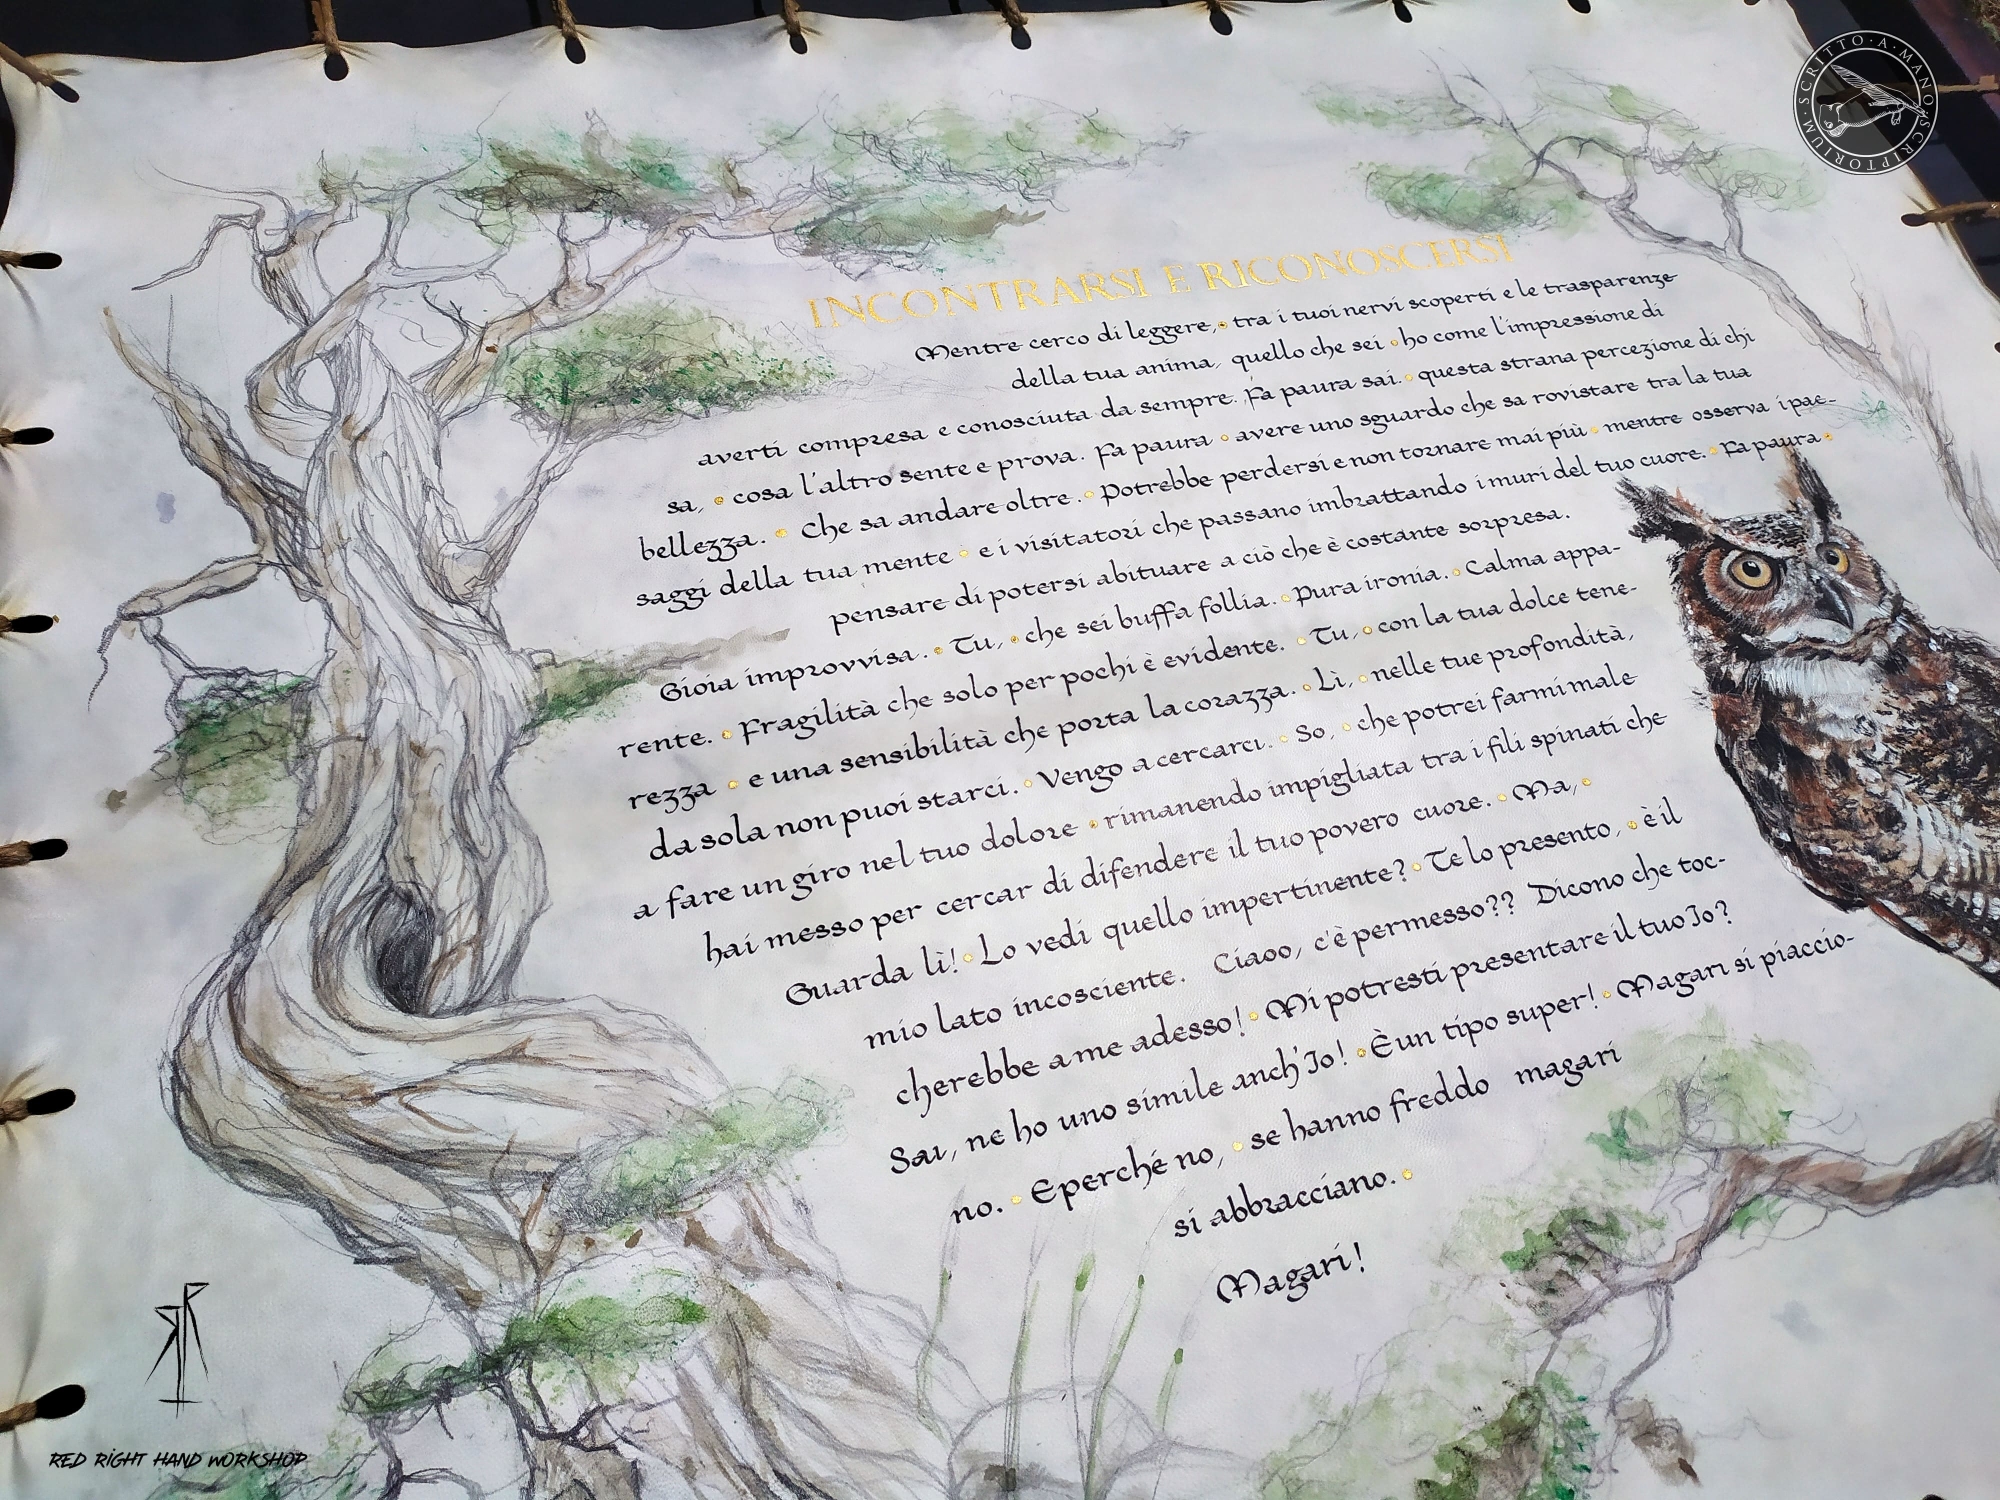 SCRITTO·A·MANO·SCRIPTORIUM·
INCONTRARSI E RICONOSCERSI
Mentre cerco di leggere, tra i tuoi nervi scoperti e le trasparenze
della tua anima, quello che sei ho come l'impressione di
averti compresa e conosciuta da sempre. Fa paura sai. questa strana percezione di chi
sa, cosa l'altro sente e prova. Fa paura avere uno sguardo che sa rovistare tra la tua
bellezza. Che sa andare oltre. Potrebbe perdersi e non tornare mai più mentre osserva i pae-
saggi della tua mente e i visitatori che passano imbrattando i muri del tuo cuore. Fa paura
pensare di potersi abituare a ciò che è costante sorpresa.
Gioia improvvisa. Tu, che sei buffa follia. Pura ironia. Calma appa-
rente. Fragilità che solo per pochi è evidente. Tu, con la tua dolce tene-
rezza e una sensibilità che porta la corazza. Lì, nelle tue profondità,
da sola non puoi starci. Vengo a cercarci. So, che potrei farmi male
a fare un giro nel tuo dolore rimanendo impigliata tra i fili spinati che
hai messo per cercar di difendere il tuo povero cuore. Ma,
Guarda lì! Lo vedi quello impertinente? Te lo presento, è il
mio lato incosciente. Ciaoo, c'è permesso?? Dicono che toc-
cherebbe a me adesso! Mi potresti presentare il tuo Io?
Sai, ne ho uno simile anch'Io! È un tipo super! Magari si piaccio-
no. E perché no, se hanno freddo magari
si abbracciano.
Magari!
RED RIGHT HAND WORKSHOP